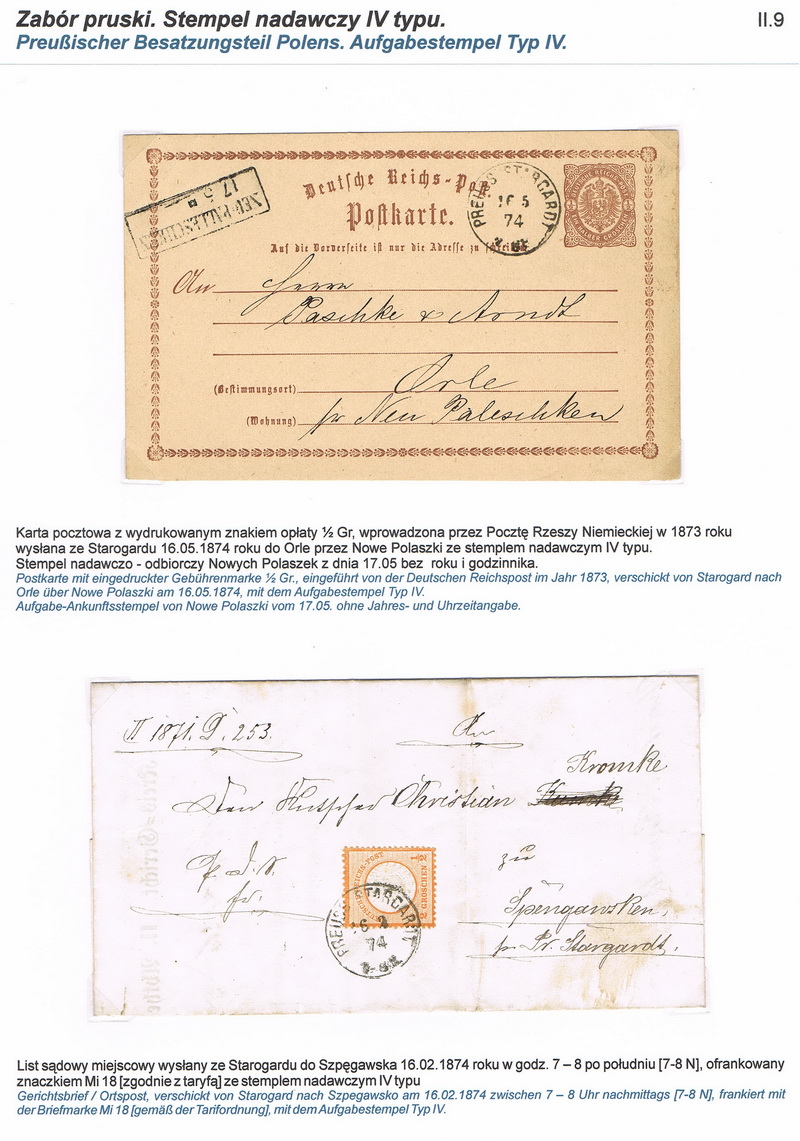 Zabór pruski. Stempel nadawczy IV typu.
II.9
Preußischer Besatzungsteil Polens. Aufgabestempel Typ IV.
NEU-PALESCHKEN
17 5
Deutsche Reichs-Post
Postkarte.
PREUSS STARGARDT
16 5
74
Auf die Vorderseite ist nur die Adresse zu schreiben
An Herrn
Paschke & Arndt
(Bestimmungsort) Orle
(Wohnung) pr Neu Paleschken
Karta pocztowa z wydrukowanym znakiem opłaty ½ Gr, wprowadzona przez Pocztę Rzeszy Niemieckiej w 1873 roku
wysłana ze Starogardu 16.05.1874 roku do Orle przez Nowe Polaszki ze stemplem nadawczym IV typu.
Stempel nadawczo - odbiorczy Nowych Polaszek z dnia 17.05 bez roku i godzinnika.
Postkarte mit eingedruckter Gebührenmarke ½ Gr., eingeführt von der Deutschen Reichspost im Jahr 1873, verschickt von Starogard nach
Orle über Nowe Polaszki am 16.05.1874, mit dem Aufgabestempel Typ IV.
Aufgabe-Ankunftsstempel von Nowe Polaszki vom 17.05. ohne Jahres- und Uhrzeitangabe.
II 1871. D. 253.
An
Kromke
Den Kutscher Christian
zu
Spengawsken,
pr Pr. Stargardt.
½ GROSCHEN
PREUSS STARGARDT
16 2
74
7-8N
List sądowy miejscowy wysłany ze Starogardu do Szpęgawska 16.02.1874 roku w godz. 7 – 8 po południu [7-8 N], ofrankowany
znaczkiem Mi 18 [zgodnie z taryfą] ze stemplem nadawczym IV typu
Gerichtsbrief / Ortspost, verschickt von Starogard nach Szpegawsko am 16.02.1874 zwischen 7 – 8 Uhr nachmittags [7-8 N], frankiert mit
der Briefmarke Mi 18 [gemäß der Tarifordnung], mit dem Aufgabestempel Typ IV.